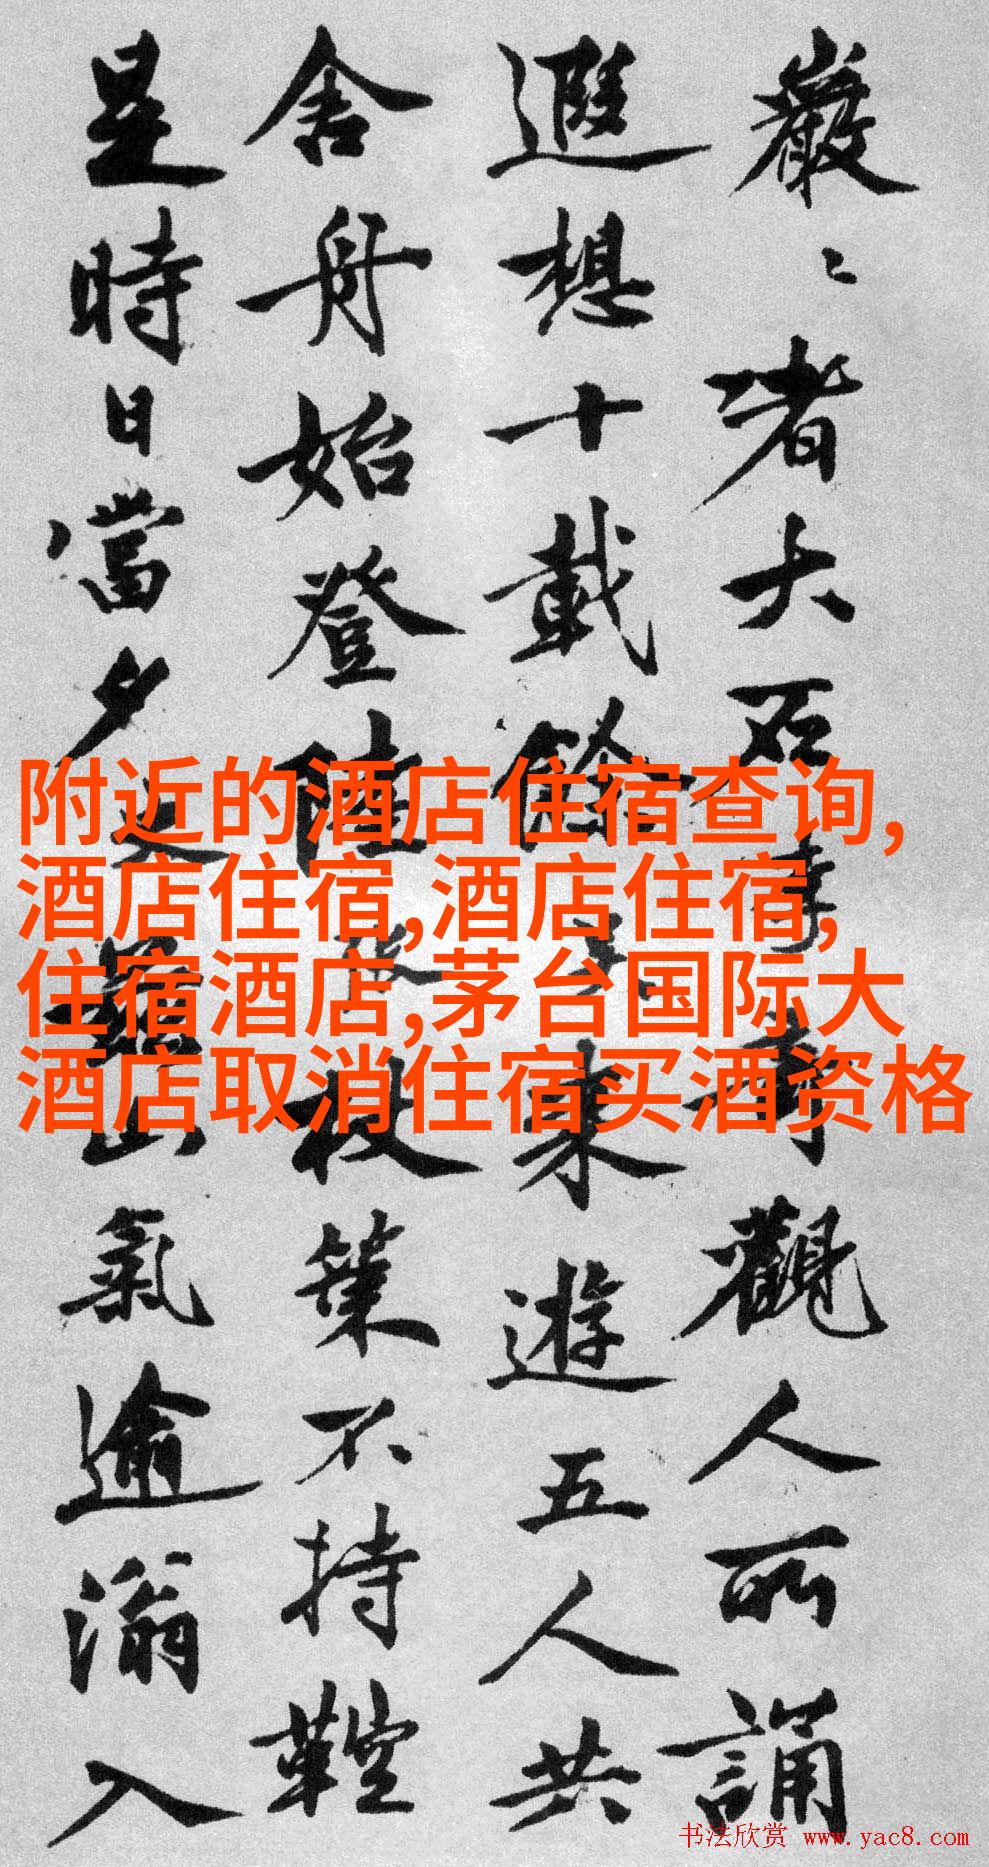 巖〻者大石觀人所誦
遐想十載餘來遊五人共
舍舟始登陸杖策不持鞚
是時日當夕山氣逾滃入
附近的酒店住宿查询,
酒店住宿,酒店住宿,
住宿酒店,茅台国际大
酒店取消住宿买酒资格
书法欣赏 www.yac8.com